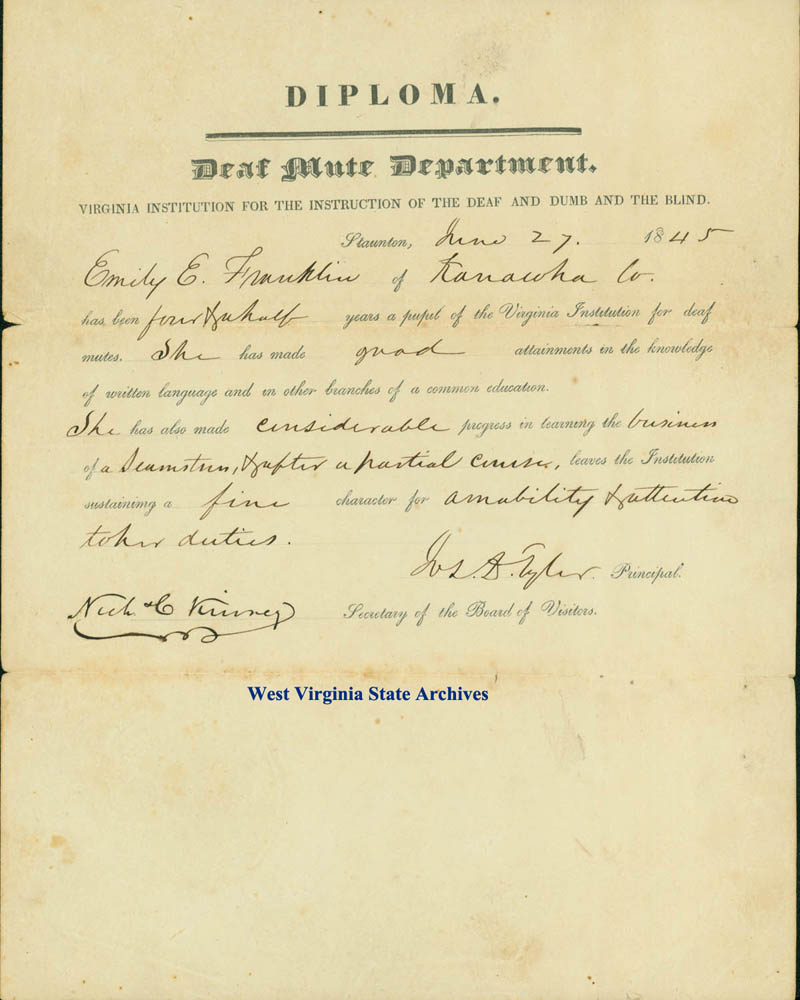 DIPLOMA.
Deaf Mute Department.
VIRGINIA INSTITUTION FOR THE INSTRUCTION OF THE DEAF AND DUMB AND THE BLIND.
Staunton, June 27. 1845
Emily E. Franklin of Kanawha Co.
has been four & a half years a pupil of the Virginia Institution for deaf
mutes. She has made good attainments in the knowledge
of written language and in other branches of a common education.
She has also made considerable progress in learning the business
of a Seamstress, & after a partial course, leaves the Institution
sustaining a fine character for amability & attention
to her duties.
Jos. D. Tyler. Principal.
Nich. C Kinney Secretary of the Board of Visitors.
West Virginia State Archives